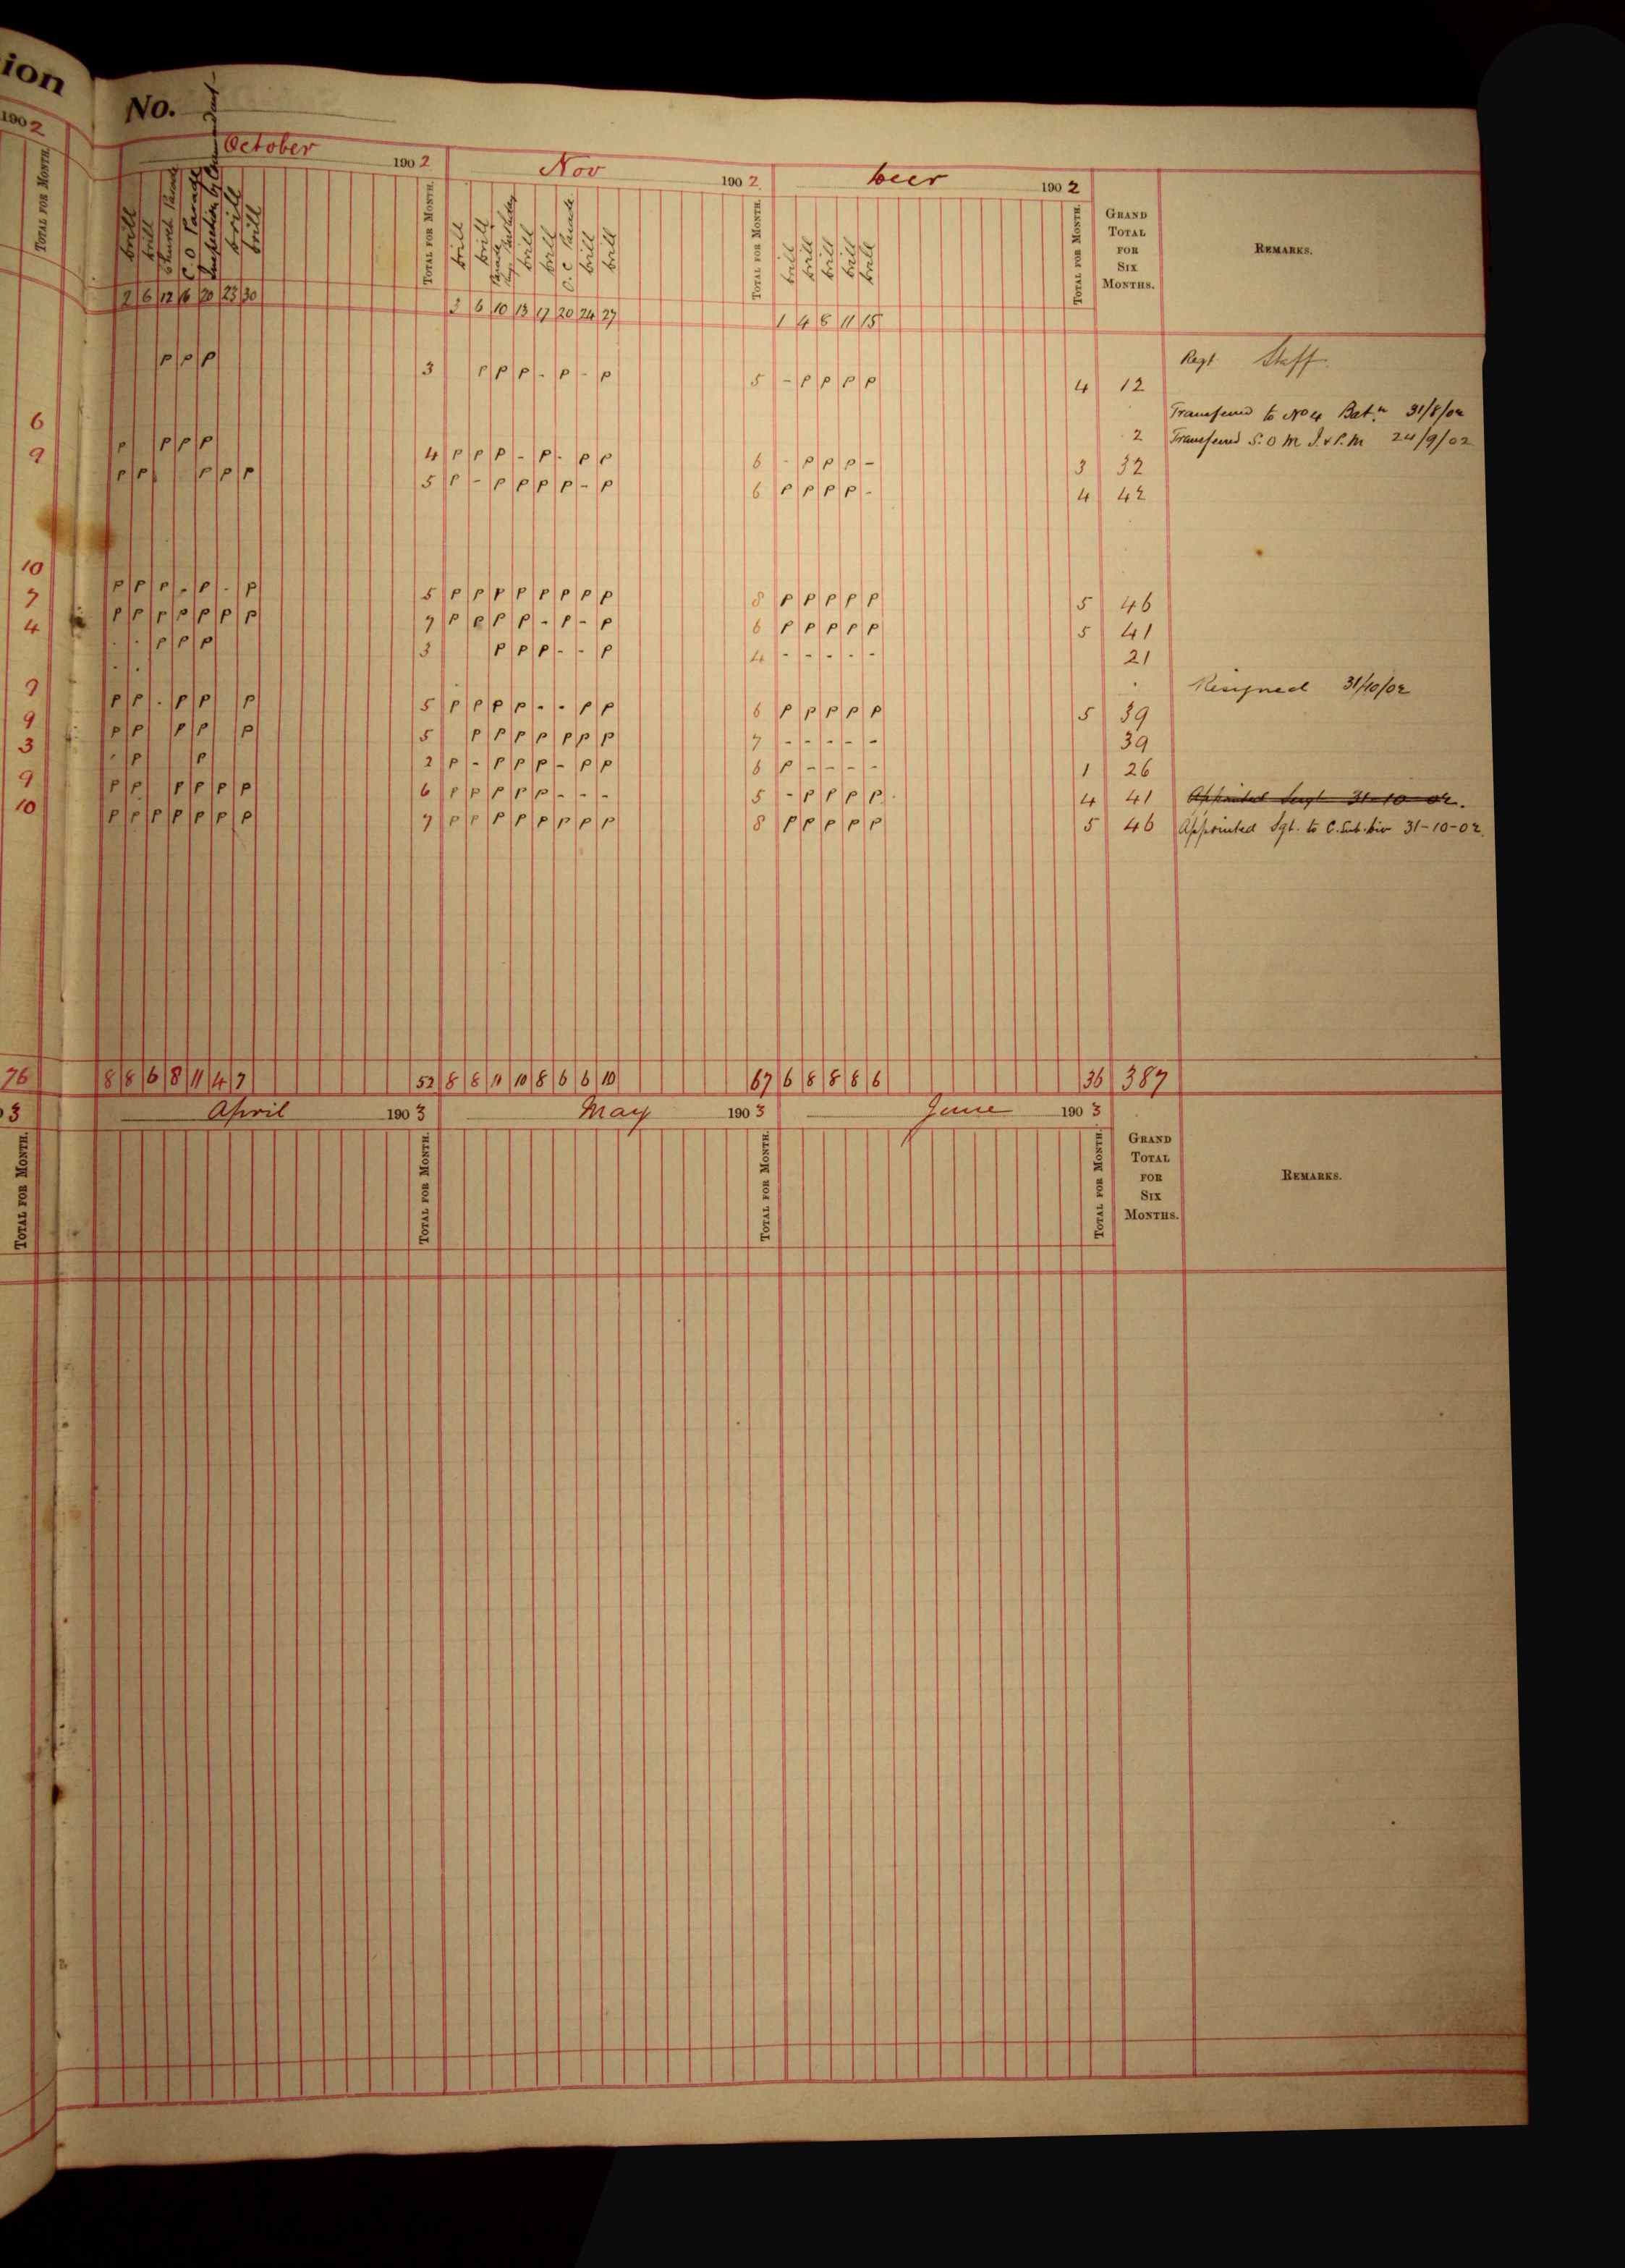 ion
No.
1902
October 1902 Nov 1902 Decr 1902
TOTAL FOR MONTH.
Drill Drill Church Parade C.O Parade Inspection by Commandant Drill Drill TOTAL FOR MONTH. Drill Drill Parade Kings Birthday Drill Drill O.C Parade Drill Drill TOTAL FOR MONTH. Drill Drill Drill Drill Drill TOTAL FOR MONTH. GRAND TOTAL FOR SIX MONTHS. REMARKS.
2 6 12 16 20 23 30 3 6 10 13 17 20 24 27 1 4 8 11 15
P P P 3 P P P - P - P 5 - P P P P 4 12 Regt Staff
6 Transferred to No 4 Batn 31/8/02
2 Transferred S.O.M.I. & P.M 24/9/02
9 P P P P 4 P P P - P - P P 6 - P P P - 3 32
P P P P P 5 P - P P P P - P 6 P P P P - 4 42
10 P P P - P - P 5 P P P P P P P P 8 P P P P P 5 46
7 P P P P P P P 7 P P P P - P - P 6 P P P P P 5 41
4 - - P P P 3 P P P - - P 4 - - - - - 21
- - Resigned 31/10/02
7 P P - P P P 5 P P P P - - P P 6 P P P P P 5 39
9 P P P P P 5 P P P P P P P 7 - - - - - 39
3 - P P 2 P - P P P - P P 6 P - - - - 1 26
9 P P P P P P 6 P P P P P - - - 5 - P P P P 4 41 Appointed Sergt 31-10-02.
10 P P P P P P P 7 P P P P P P P P 8 P P P P P 5 46 Appointed Sgt. to C. Sub-Div 31-10-02.
76 8 8 6 8 11 4 7 52 8 8 11 10 8 6 6 10 67 6 8 8 8 6 36 387
3 April 1903 May 1903 June 1903
TOTAL FOR MONTH. TOTAL FOR MONTH. TOTAL FOR MONTH. TOTAL FOR MONTH. GRAND TOTAL FOR SIX MONTHS. REMARKS.